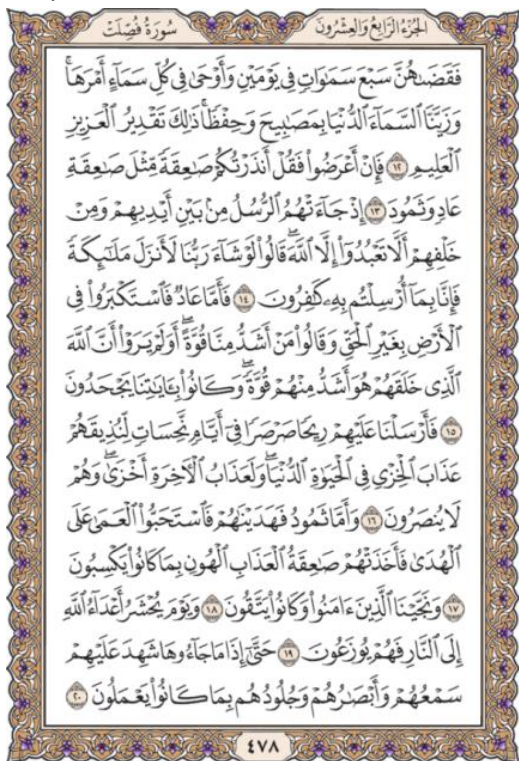 الجُزْءُ الرَّابِعُ وَالعِشْرُونَ سُورَةُ فُصِّلَتْ
فَقَضَىٰهُنَّ سَبْعَ سَمَٰوَاتٖ فِي يَوۡمَيۡنِ وَأَوۡحَىٰ فِي كُلِّ سَمَآءٍ أَمۡرَهَاۚ
وَزَيَّنَّا ٱلسَّمَآءَ ٱلدُّنۡيَا بِمَصَٰبِيحَ وَحِفۡظٗاۚ ذَٰلِكَ تَقۡدِيرُ ٱلۡعَزِيزِ
ٱلۡعَلِيمِ ١٢ فَإِنۡ أَعۡرَضُواْ فَقُلۡ أَنذَرۡتُكُمۡ صَٰعِقَةٗ مِّثۡلَ صَٰعِقَةِ
عَادٖ وَثَمُودَ ١٣ إِذۡ جَآءَتۡهُمُ ٱلرُّسُلُ مِنۢ بَيۡنِ أَيۡدِيهِمۡ وَمِنۡ
خَلۡفِهِمۡ أَلَّا تَعۡبُدُوٓاْ إِلَّا ٱللَّهَۖ قَالُواْ لَوۡ شَآءَ رَبُّنَا لَأَنزَلَ مَلَٰٓئِكَةٗ
فَإِنَّا بِمَآ أُرۡسِلۡتُم بِهِۦ كَٰفِرُونَ ١٤ فَأَمَّا عَادٞ فَٱسۡتَكۡبَرُواْ فِي
ٱلۡأَرۡضِ بِغَيۡرِ ٱلۡحَقِّ وَقَالُواْ مَنۡ أَشَدُّ مِنَّا قُوَّةًۖ أَوَلَمۡ يَرَوۡاْ أَنَّ ٱللَّهَ
ٱلَّذِي خَلَقَهُمۡ هُوَ أَشَدُّ مِنۡهُمۡ قُوَّةٗۖ وَكَانُواْ بِـَٔايَٰتِنَا يَجۡحَدُونَ
١٥ فَأَرۡسَلۡنَا عَلَيۡهِمۡ رِيحٗا صَرۡصَرٗا فِيٓ أَيَّامٖ نَّحِسَاتٖ لِّنُذِيقَهُمۡ
عَذَابَ ٱلۡخِزۡيِ فِي ٱلۡحَيَوٰةِ ٱلدُّنۡيَاۖ وَلَعَذَابُ ٱلۡأٓخِرَةِ أَخۡزَىٰۖ وَهُمۡ
لَا يُنصَرُونَ ١٦ وَأَمَّا ثَمُودُ فَهَدَيۡنَٰهُمۡ فَٱسۡتَحَبُّواْ ٱلۡعَمَىٰ عَلَى
ٱلۡهُدَىٰ فَأَخَذَتۡهُمۡ صَٰعِقَةُ ٱلۡعَذَابِ ٱلۡهُونِ بِمَا كَانُواْ يَكۡسِبُونَ
١٧ وَنَجَّيۡنَا ٱلَّذِينَ ءَامَنُواْ وَكَانُواْ يَتَّقُونَ ١٨ وَيَوۡمَ يُحۡشَرُ أَعۡدَآءُ ٱللَّهِ
إِلَى ٱلنَّارِ فَهُمۡ يُوزَعُونَ ١٩ حَتَّىٰٓ إِذَا مَا جَآءُوهَا شَهِدَ عَلَيۡهِمۡ
سَمۡعُهُمۡ وَأَبۡصَٰرُهُمۡ وَجُلُودُهُم بِمَا كَانُواْ يَعۡمَلُونَ ٢٠
٤٧٨